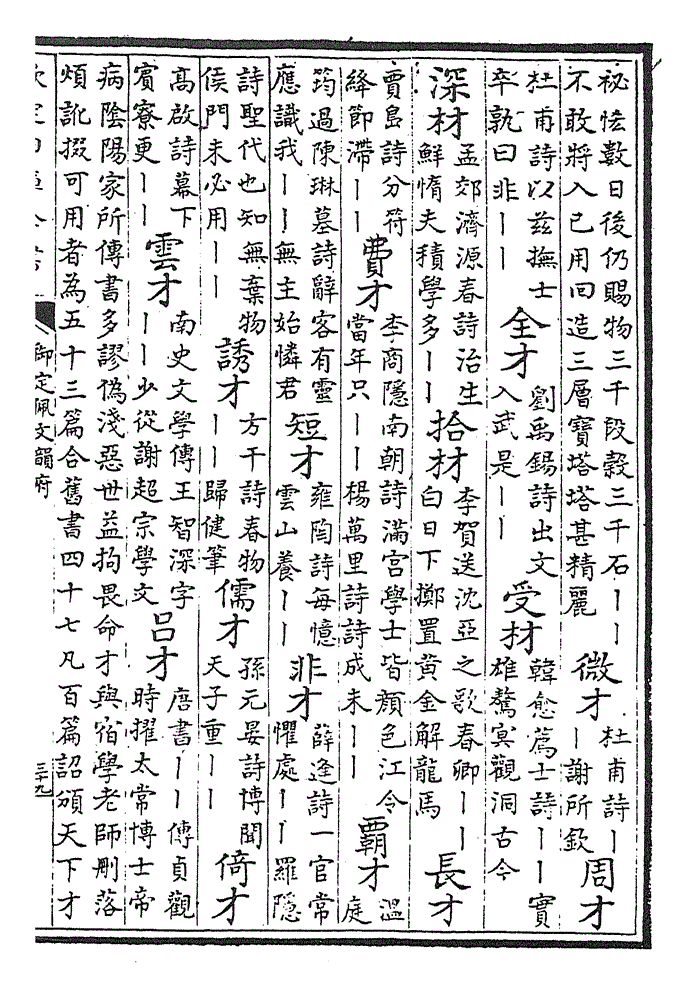 秘怯數日後仍賜物三千段穀三千石丨丨
不敢將入己用回造三層寶塔塔甚精麗
微才
杜甫詩丨
丨謝所欽
周才
杜甫詩以兹撫士
卒孰曰非丨丨
全才
劉禹錫詩出文
入武是丨丨
受材
韓愈薦士詩丨丨實
雄驁冥觀洞古今
深材
孟郊濟源春詩治生
鮮惰夫積學多丨丨
拾材
李賀送沈亞之歌春卿丨丨
白日下擲置黃金解龍馬
長才
賈島詩分符
絳節滯丨丨
費才
李商隱南朝詩滿宫學士皆顏色江令
當年只丨丨楊萬里詩詩成未丨丨
霸才
溫
庭
筠過陳琳墓詩辭客有靈
應識我丨丨無主始憐君
短才
雍陶詩每憶
雲山養丨丨
非才
薛逢詩一官常
懼處丨丨羅隱
詩聖代也知無棄物
侯門未必用丨丨
誘才
方干詩春物
丨丨歸健筆
儒才
孫元晏詩博聞
天子重丨丨
倚才
高啟詩幕下
賓寮更丨丨
雲才
南史文學傳王智深字
丨丨少從謝超宗學文
吕才
唐書丨丨傳貞觀
時擢太常博士帝
病陰陽家所傳書多謬偽淺惡世益拘畏命才與宿學老師刪落
煩訛掇可用者為五十三篇合舊書四十七凡百篇詔頒天下才
御定佩文韻府
三十九